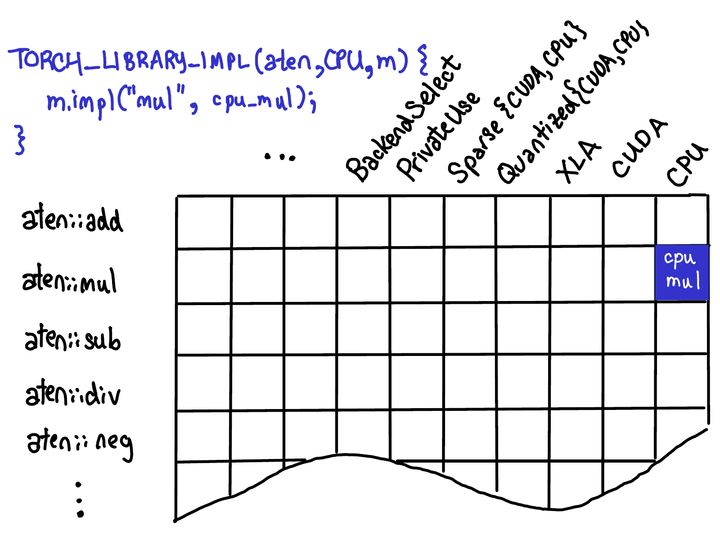 TORCH_LIBRARY_IMPL(aten,CPU,m) {
m.impl("mul", cpu_mul);
}
...
BackendSelect
PrivateUse
Sparse {CUDA,CPU}
Quantized{CUDA,CPU}
XLA
CUDA
CPU
aten::add
aten::mul
cpu
mul
aten::sub
aten::div
aten::neg
⋮